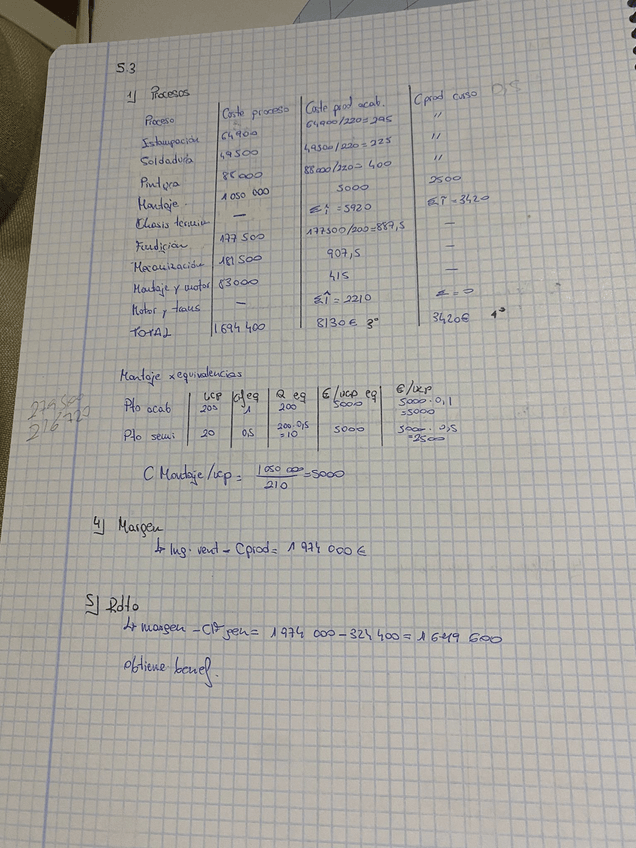 5.3
1) Procesos
Proceso Coste proceso Coste prod acab. C prod curso 0,5
Estampación 64900 64,900/220=295 "
Soldadura 49500 49500/220=225 "
Pintura 88000 88000/220=400 "
Montaje 1050 000 5000 2500
Chasis termin — Σî=5920 Σî=3420
Fundición 177 500 177500/200=887,5 —
Mecanización 181 500 907,5 —
Montaje y motor 83000 415 —
Motor y trans — Σî=2210 Σ=0
TOTAL 1694 400 8130€ 3° 3420€ 4°
Montaje x equivalencias
ucp Q eq €/ucp eq €/ucp
Pto acab 200 1 200 5000 5000·0,1 =5000
Pto semi 20 0,5 200·0,5 =10 5000 5000·0,5 =2500
C Montaje/ucp= 1050 000/210 =5000
4) Margen
↳ Ing. vent - Cprod= 1 974 000€
5) Rdto
↳ margen - CIF gen= 1 974 000-324 400=1 649 600
obtiene benef.